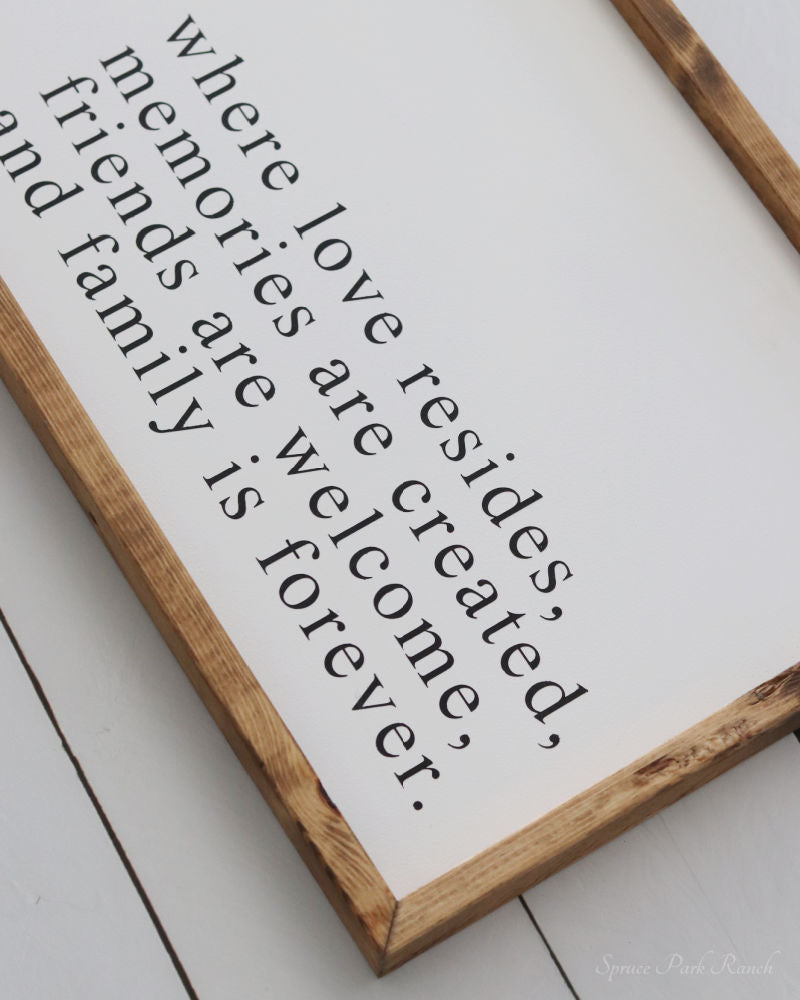 where love resides,
memories are created,
friends are welcome,
and family is forever.
Spruce Park Ranch